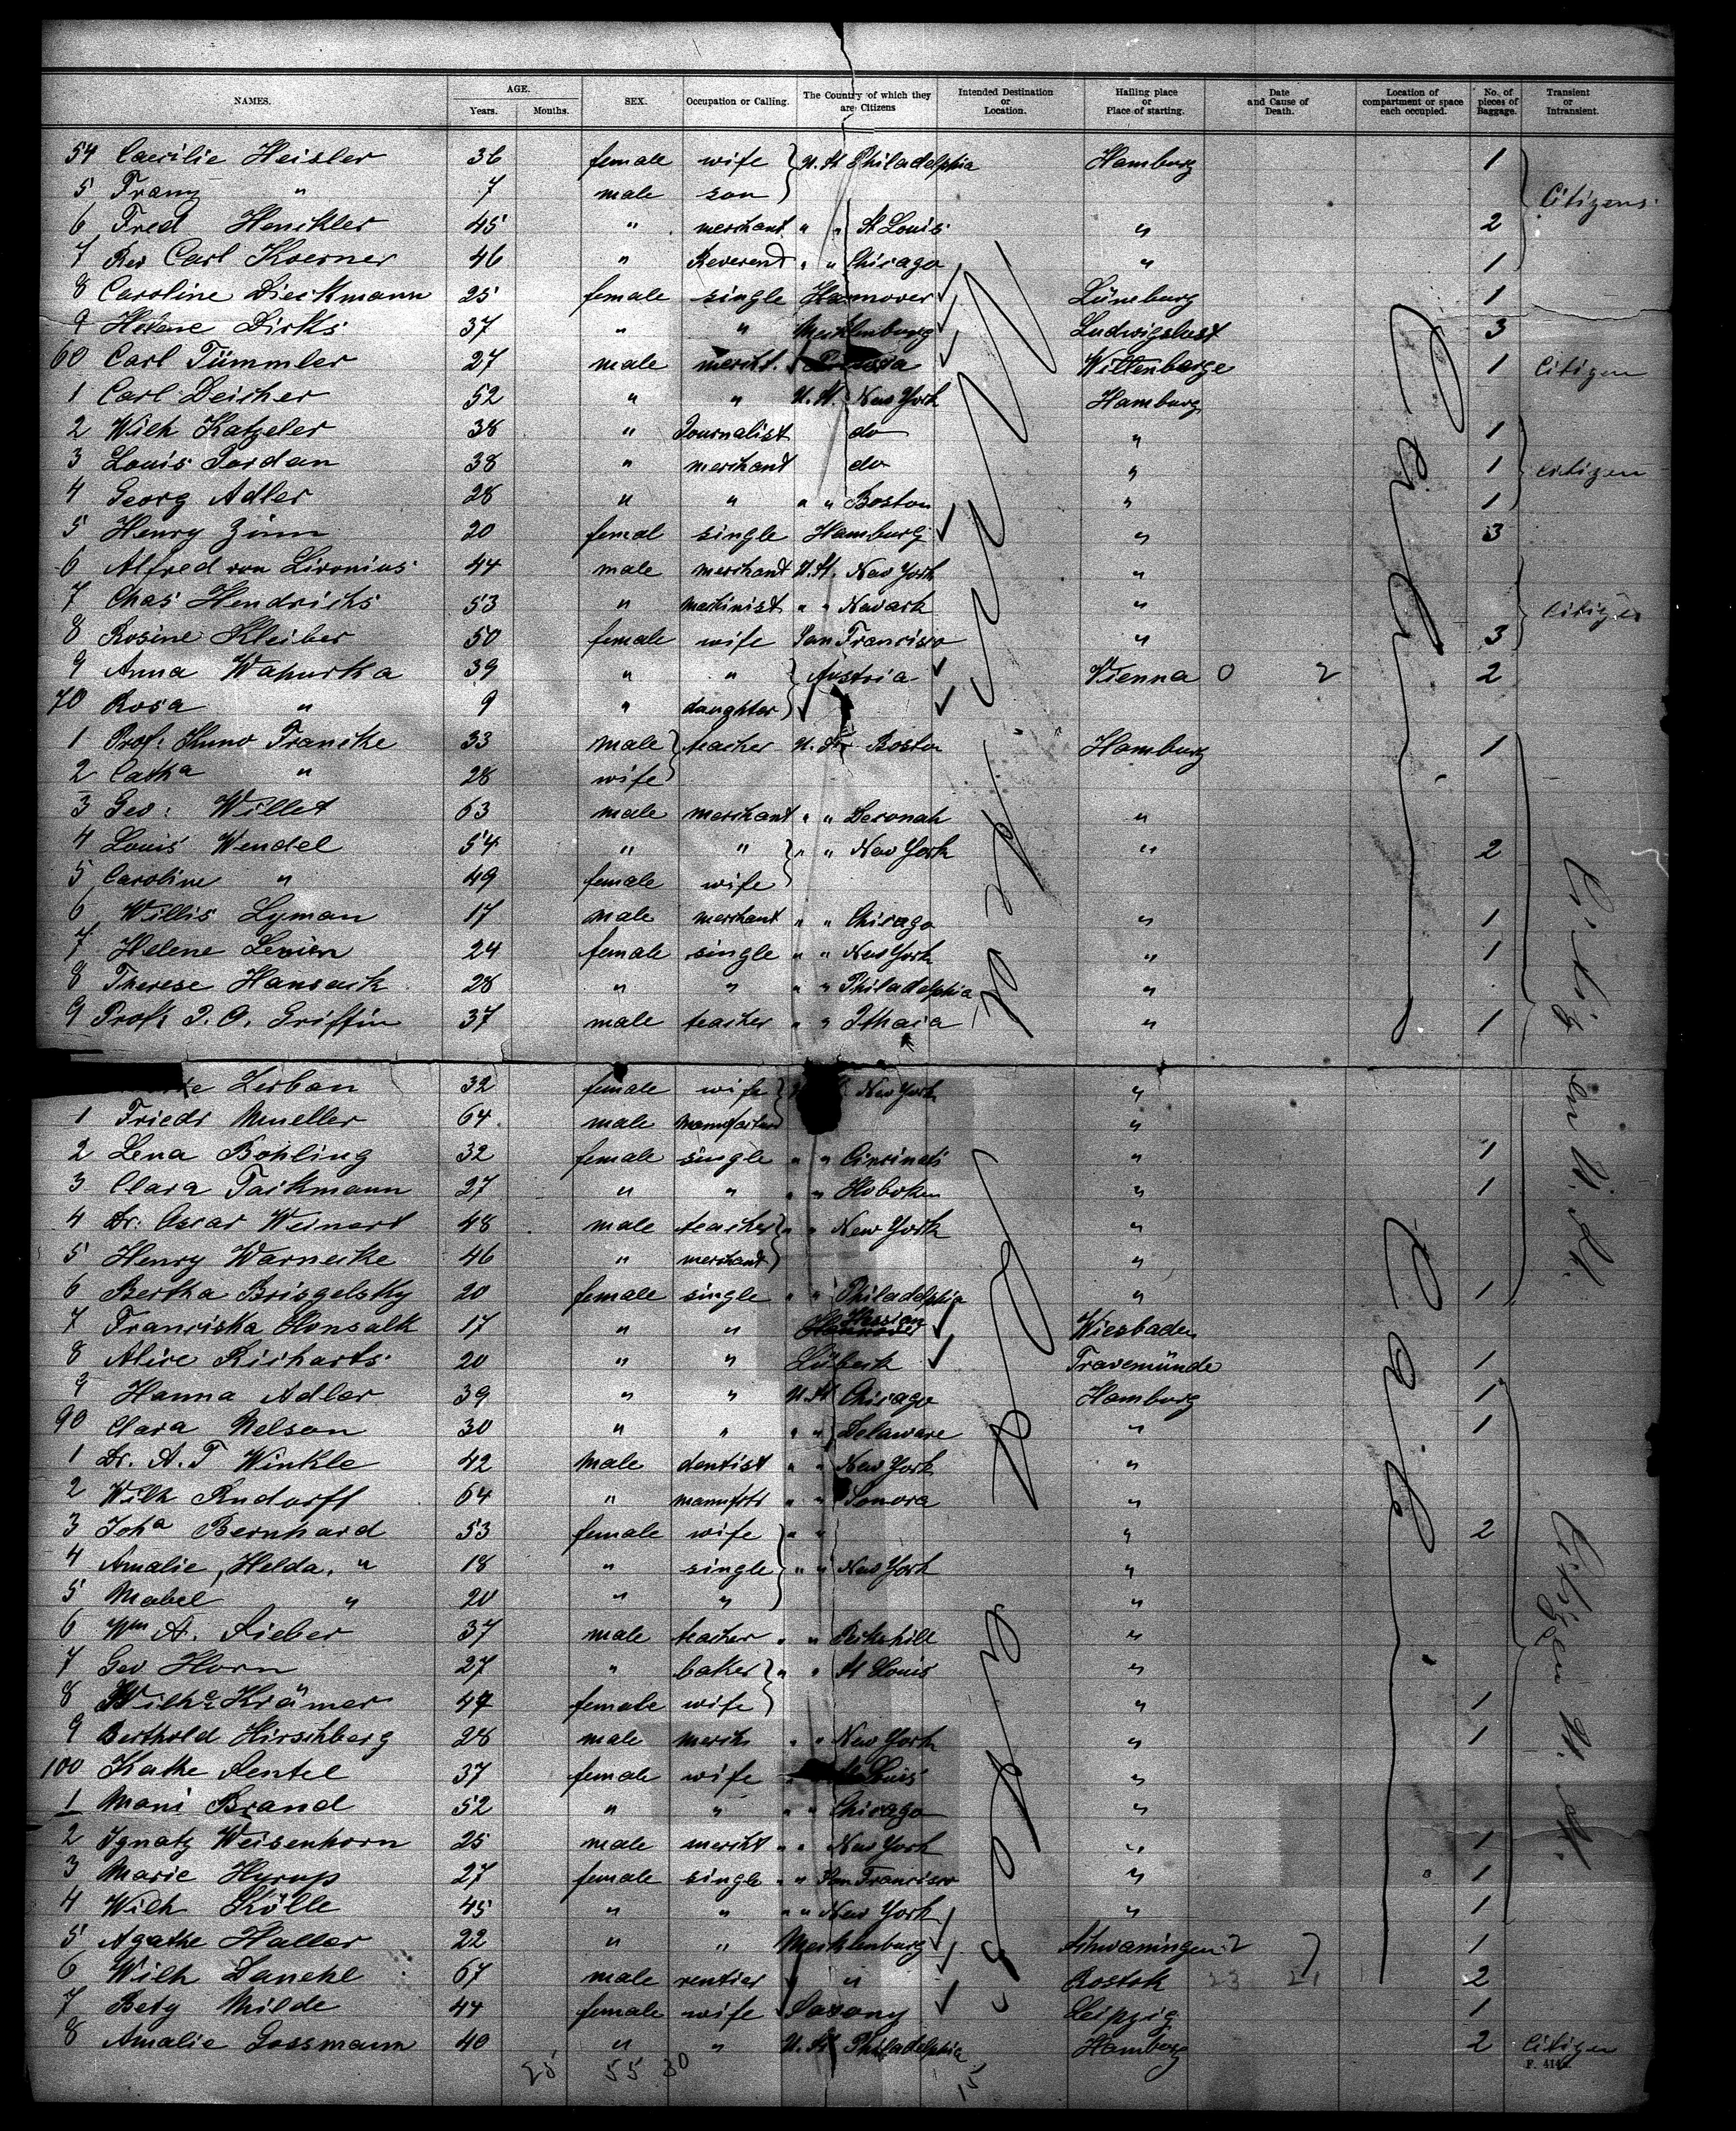 NAMES. AGE. Years. Months. SEX. Occupation or Calling. The Country of which they are Citizens Intended Destination or Location. Hailing place or Place of starting. Date and Cause of Death. Location of compartment or space each occupied. No. of pieces of Baggage. Transient or Intransient.
54 Caecilie Heisler 36 female wife U. St Philadelphia Hamburg 1
5 Franz " 7 male son Citizens
6 Fred Henckler 45 " merchant " " St Louis " 2
7 Rev Carl Koerner 46 " Reverend " " Chicago " 1
8 Caroline Dieckmann 25 female single Hannover Lüneburg 1
9 Helene Dirks 37 " " Mecklenburg Ludwigslust 3
60 Carl Tümmler 27 male mercht. Wittenberge 1 Citizen
1 Carl Deicher 52 " " U. St. New York Hamburg
2 Wilh Katzeler 38 " Journalist do " 1
3 Louis Jordan 38 " merchant do " 1 Citizen
4 Georg Adler 28 " " " " Boston " 1
5 Henry Zinn 20 femal single Hamburg " 3
6 Alfred von Livonius 44 male merchant U. St. New York "
7 Chas Hendrichs 53 " machinist " " Newark " Citizen
8 Rosine Kleiber 50 female wife San Francisco " 3
9 Anna Wapurka 39 " " Austria Vienna 0 2 2
70 Rosa " 9 " daughter
1 Prof: Kuno Francke 33 male teacher U. St Boston Hamburg 1
2 Catha " 28 wife
3 Geo: Willet 63 male merchant " " "
4 Louis Wendel 54 " " " " New York " 2
5 Caroline " 49 female wife
6 Willis Lyman 17 male merchant " " Chicago " 1
7 Helene 24 female single " " New York " 1
8 Therese 28 " " " " Philadelphia "
9 Profs Griffin 37 male teacher " " Ithaca " 1
Zerban 32 female wife New York "
1 Friedr Mueller 64 male "
2 Lena Bohling 32 female single " " Cincinati " 1
3 Clara Tackmann 27 " " " " Hoboken " 1
4 Dr. Oscar Weinert 48 male teacher " " New York "
5 Henry Warnecke 46 " merchant "
6 Bertha Brisgelsky 20 female single " " Philadelphia " 1
7 Franciska 17 " " Hessian Wiesbaden
8 Alice Richarts 20 " " Lübeck Travemünde 1
9 Hanna Adler 39 " " U. St Chicago Hamburg 1
90 Clara Nelson 30 " " " " Delaware " 1
1 Dr. A. T Winkle 42 male dentist " " New York "
2 Wilh Rudorff 64 " " " Sonora "
3 Joha Bernhard 53 female wife " " " 2
4 Amalie, Helda, " 18 " single " " New York "
5 Mabel " 20 " " "
6 Wm A. Sieber 37 male teacher " " Peekshill "
7 Geo Horn 27 " baker " " St Louis "
8 Wilhe Krämer 47 female wife " 1
9 Berthold Hirschberg 28 male merch " " New York " 1
100 Kathe Sentel 37 female wife St Louis "
1 Mani Brand 52 " " " " Chicago "
2 Ignatz Weisenhorn 25 male mercht " " New York " 1
3 Marie Hyrup 27 female single " " San Francisco " 1
4 Wilh Kölle 45 " " " " New York " 1
5 Agathe Haller 22 " " Mecklenburg 1
6 Wilh Danehl 67 male rentier " Rostok 2
7 Bety Milde 44 female wife Saxony Leipzig 1
8 Amalie Gossmann 40 " " U. St Philadelphia Hamburg 2 Citizen
25 55 30 15
Citizen U. St.
Citizen U. St.